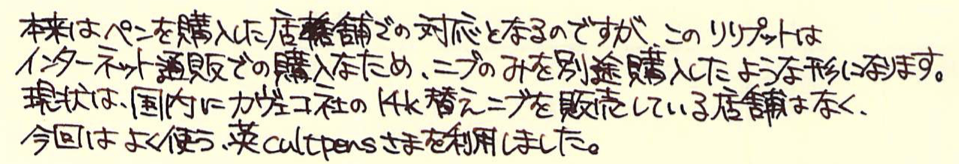 本来はペンを購入した店舗での対応となるのですが、このリリプットは
インターネット通販での購入なため、ニブのみを別途購入したような形になります。
現状は、国内にカヴェコ社の14k替えニブを販売している店舗はなく、
今回はよく使う、英cultpensさまを利用しました。